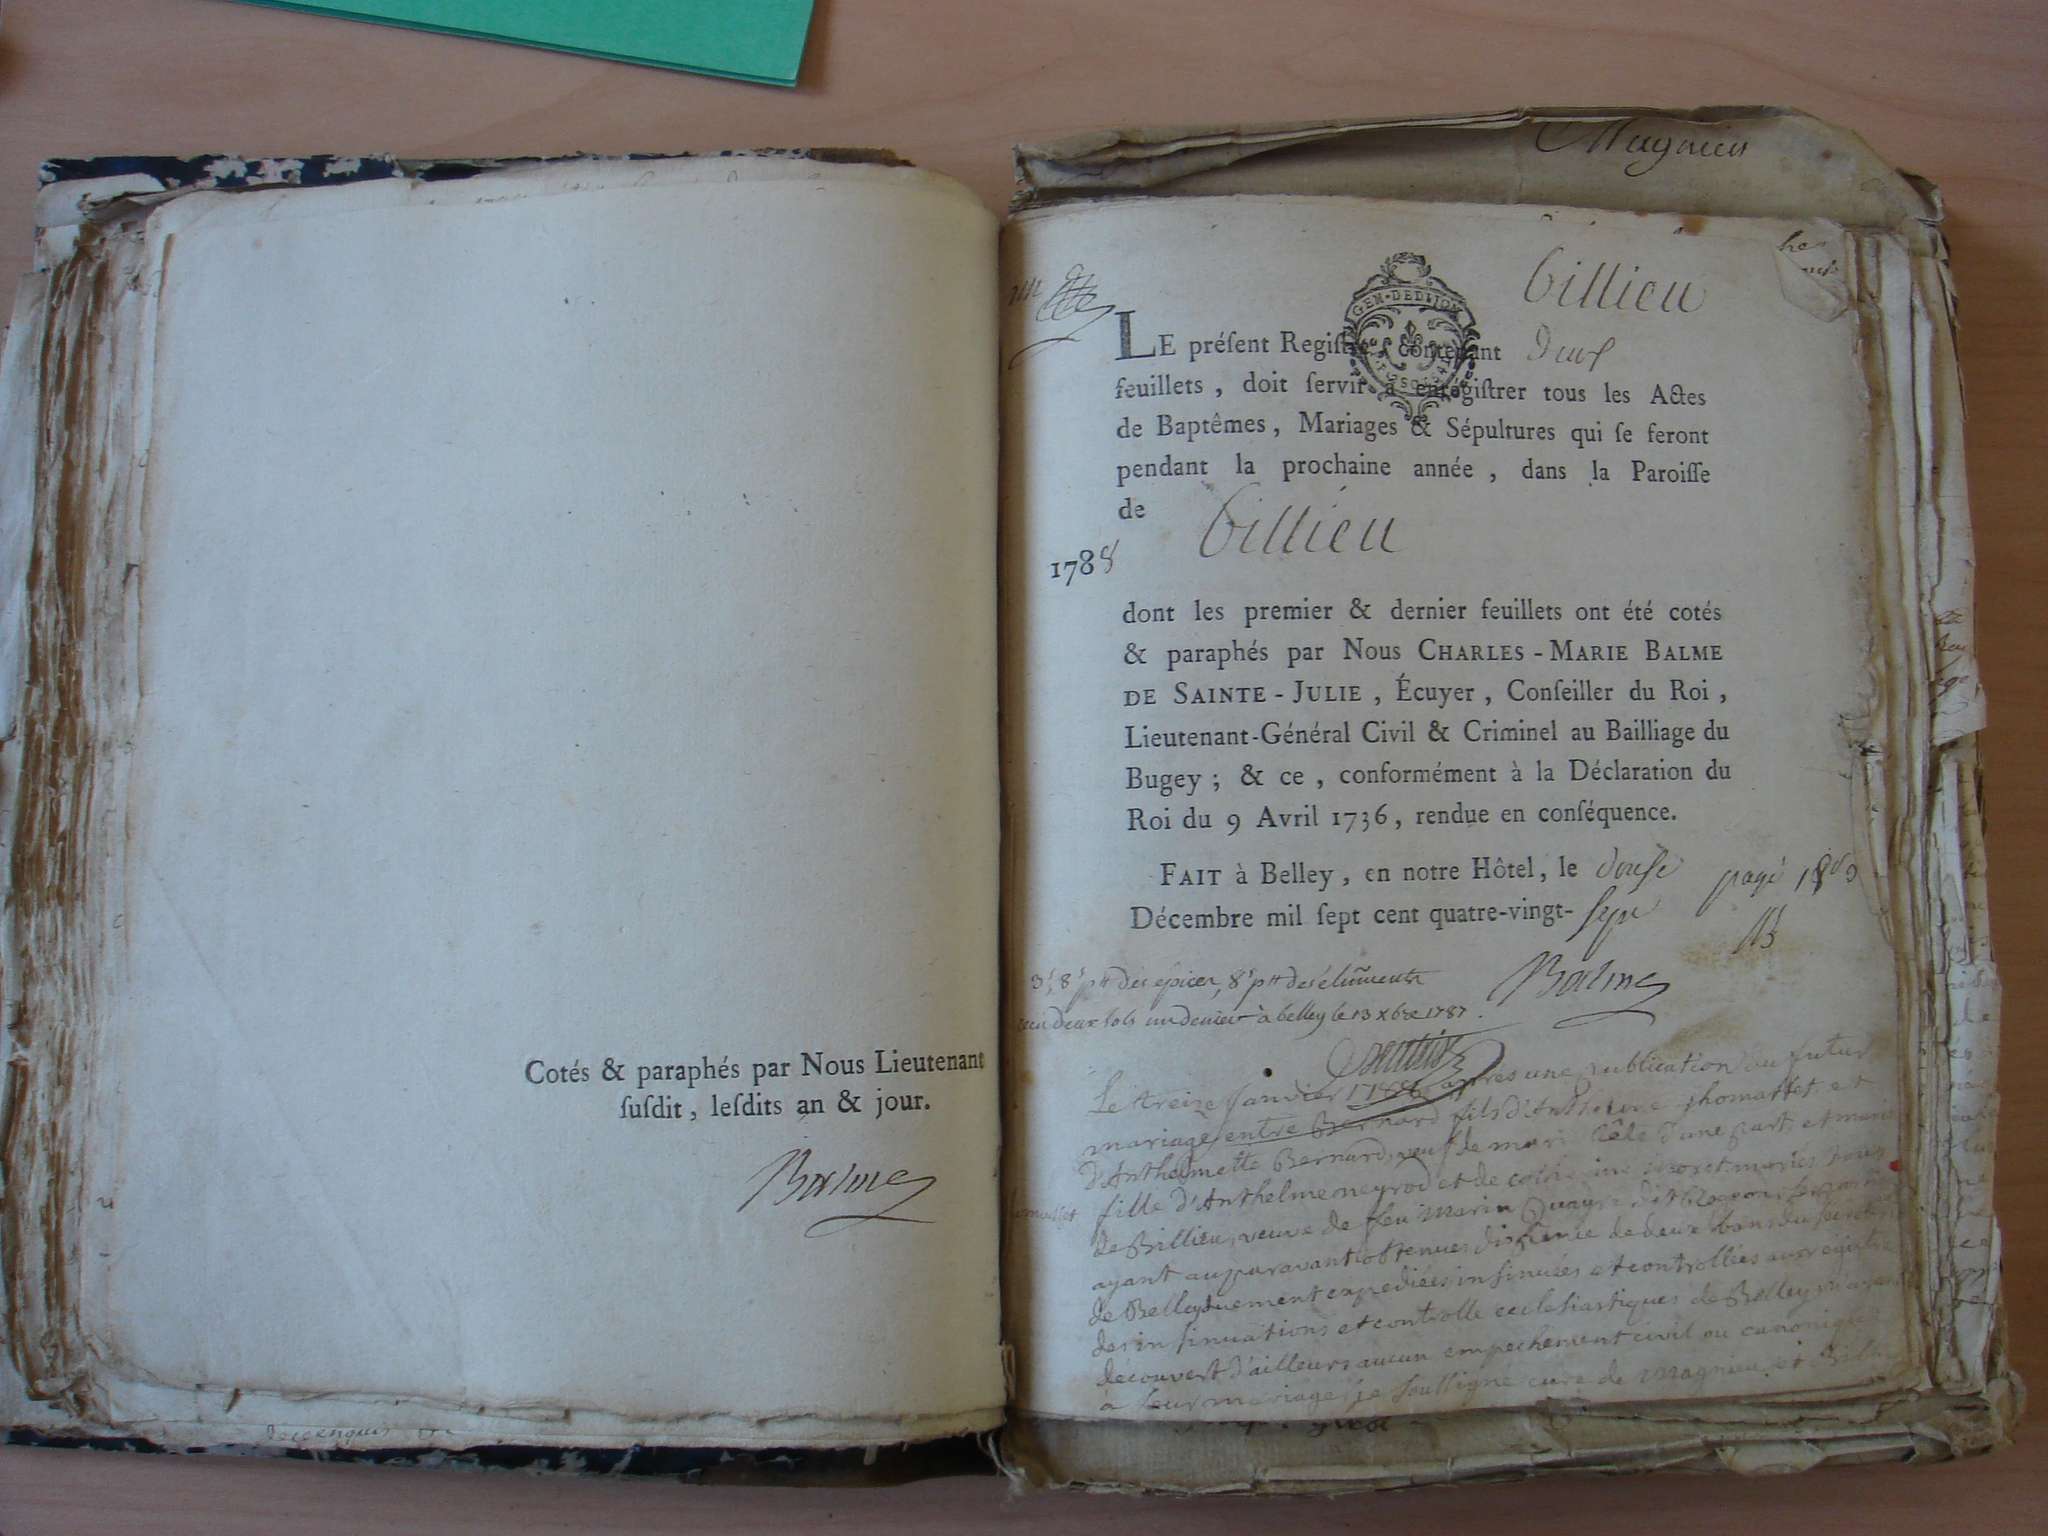 Cotés & paraphés par Nous Lieutenant
ſuſdit, leſdits an & jour.
Balme
Magnieu
Billieu
GEN. DE DIJON
LE préſent Regiſtre, contenant deux
feuillets, doit ſervir à enrégiſtrer tous les Actes
de Baptêmes, Mariages & Sépultures qui ſe feront
pendant la prochaine année, dans la Paroiſſe
de Billieu
1788
dont les premier & dernier feuillets ont été cotés
& paraphés par Nous CHARLES-MARIE BALME
DE SAINTE-JULIE, Écuyer, Conſeiller du Roi,
Lieutenant-Général Civil & Criminel au Bailliage du
Bugey; & ce, conformément à la Déclaration du
Roi du 9 Avril 1736, rendue en conſéquence.
FAIT à Belley, en notre Hôtel, le douſe
Décembre mil ſept cent quatre-vingt-ſept
payé
Balme
deux sols un denier à belley le 13 xbre 1787.
Le treize janvier 1788 après une publication du futur
mariage entre Bernard fils d'Anthelme thomasset et
d'Anthelmette Bernard, veuf de d'une part, et marie
fille d'Anthelme neyrod et de mariés
de Billieu, veuve de feu marin
ayant auparavant obtenues dispence de deux bans
de Belley duement expediées insinuées et controllées aux registres
des insinuations et controlle ecclesiastiques de Belley, n'ayant
découvert d'ailleurs aucun empechement civil ou canonique
à leur mariage, je soussigné curé de magnieu et Billieu